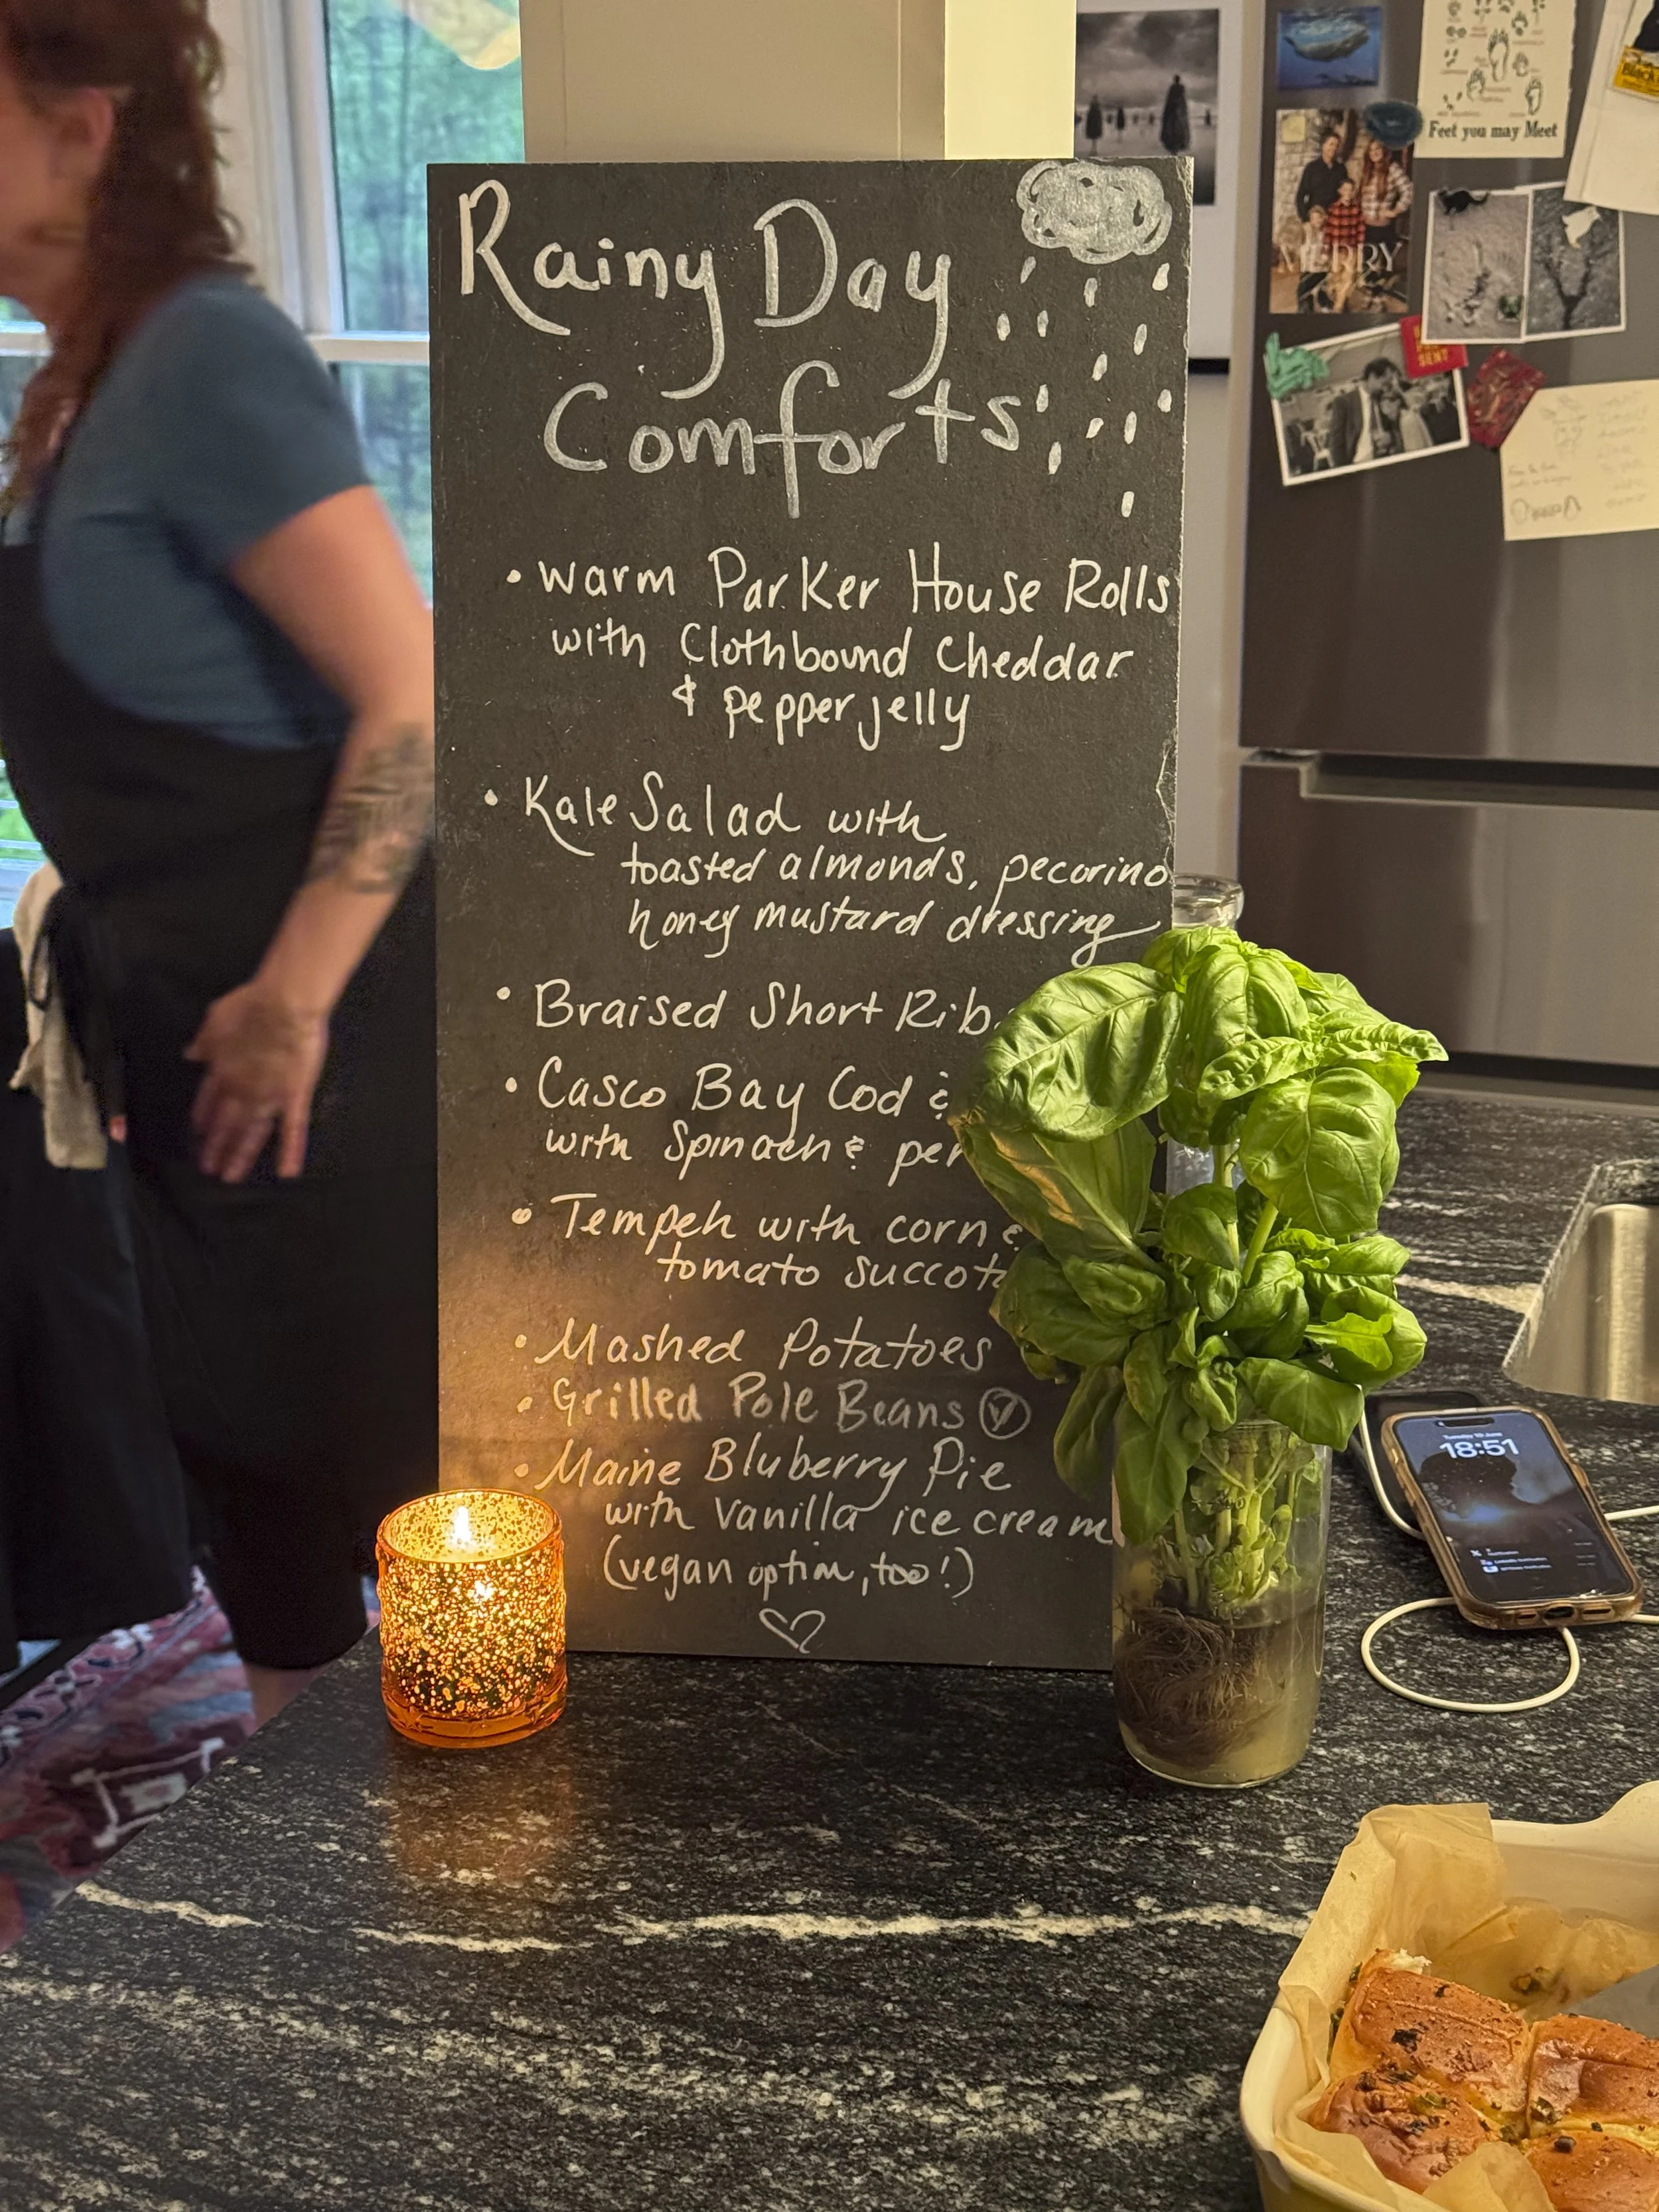 Rainy Day
Comforts
• warm Parker House Rolls
with Clothbound Cheddar
& pepper jelly
• Kale Salad with
toasted almonds, pecorino
honey mustard dressing
• Braised Short Rib
• Casco Bay Cod &
with Spinach &
• Tempeh with corn &
tomato
• Mashed Potatoes
• Grilled Pole Beans Ⓥ
• Maine Bluberry Pie
with Vanilla ice cream
(vegan option, too!)
Feet you may Meet
MERRY
18:51